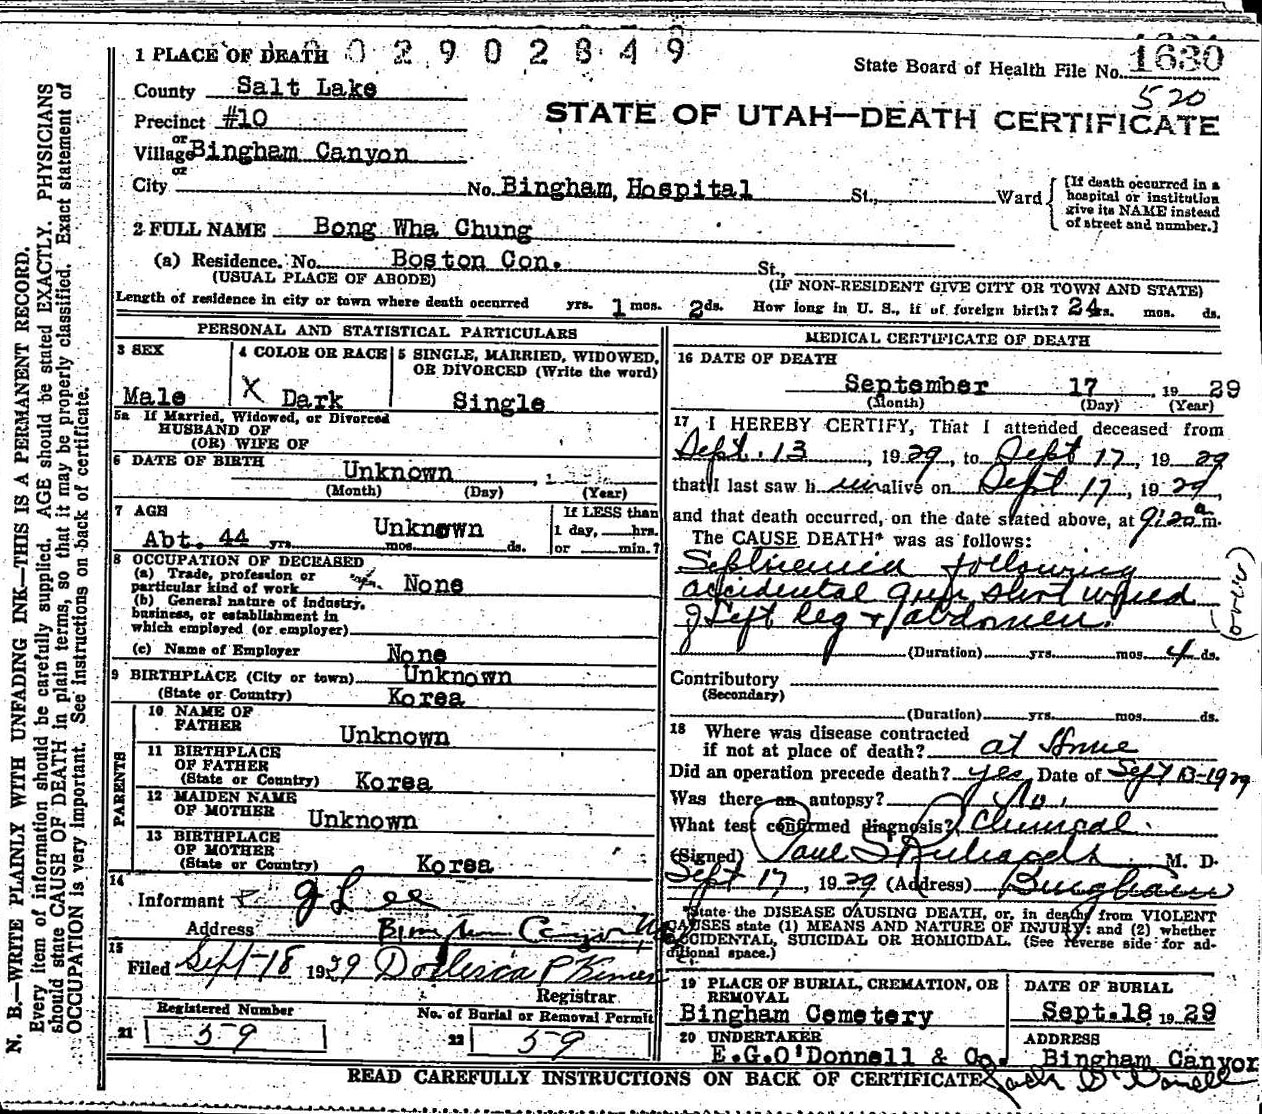 1 PLACE OF DEATH 0 0 2 9 0 2 8 4 9
State Board of Health File No. 1630
520
County Salt Lake
STATE OF UTAH—DEATH CERTIFICATE
Precinct #10
or
Village Bingham Canyon
or
City No. Bingham Hospital St., Ward
[If death occurred in a
hospital or institution
give its NAME instead
of street and number.]
2 FULL NAME Bong Wha Chung
(a) Residence. No. Boston Con. St.,
(USUAL PLACE OF ABODE) (IF NON-RESIDENT GIVE CITY OR TOWN AND STATE)
Length of residence in city or town where death occurred yrs. 1 mos. 2 ds. How long in U. S., if of foreign birth? 24 yrs. mos. ds.
PERSONAL AND STATISTICAL PARTICULARS
3 SEX
Male
4 COLOR OR RACE
X Dark
5 SINGLE, MARRIED, WIDOWED,
OR DIVORCED (Write the word)
Single
5a If Married, Widowed, or Divorced
HUSBAND OF
(OR) WIFE OF
6 DATE OF BIRTH
Unknown , 1
(Month) (Day) (Year)
7 AGE
Abt. 44 yrs. Unknown mos. ds.
If LESS than
1 day, hrs.
or min.?
8 OCCUPATION OF DECEASED
(a) Trade, profession or
particular kind of work None
(b) General nature of industry,
business, or establishment in
which employed (or employer)
(c) Name of Employer None
9 BIRTHPLACE (City or town) Unknown
(State or Country) Korea
PARENTS
10 NAME OF
FATHER Unknown
11 BIRTHPLACE
OF FATHER
(State or Country) Korea
12 MAIDEN NAME
OF MOTHER Unknown
13 BIRTHPLACE
OF MOTHER
(State or Country) Korea
14
Informant J Lee
Address Bingham Canyon
15
Filed Sept-18 1929
Registrar
Registered Number
21 59
No. of Burial or Removal Permit
22 59
MEDICAL CERTIFICATE OF DEATH
16 DATE OF DEATH
September 17 , 19 29
(Month) (Day) (Year)
17 I HEREBY CERTIFY, That I attended deceased from
Sept. 13 , 1929, to Sept 17, 19 29
that I last saw him alive on Sept 17, 1929,
and that death occurred, on the date stated above, at 9:20 a m.
The CAUSE DEATH* was as follows:
Septicemia following
accidental gun shot wound
of Left leg & abdomen.
(over)
(Duration) yrs. mos. 4 ds.
Contributory
(Secondary)
(Duration) yrs. mos. ds.
18 Where was disease contracted
if not at place of death? at Home
Did an operation precede death? yes Date of Sept 13-1929
Was there an autopsy? No.
What test confirmed diagnosis? Clinical.
(Signed) Paul S Richards M. D.
Sept 17, 1929 (Address) Bingham
*State the DISEASE CAUSING DEATH, or, in deaths from VIOLENT
CAUSES state (1) MEANS AND NATURE OF INJURY; and (2) whether
ACCIDENTAL, SUICIDAL OR HOMICIDAL. (See reverse side for ad-
ditional space.)
19 PLACE OF BURIAL, CREMATION, OR
REMOVAL
Bingham Cemetery
DATE OF BURIAL
Sept.18 1929
20 UNDERTAKER
E.G.O'Donnell & Co.
ADDRESS
Bingham Canyon
READ CAREFULLY INSTRUCTIONS ON BACK OF CERTIFICATE
N. B.—WRITE PLAINLY WITH UNFADING INK—THIS IS A PERMANENT RECORD.
Every item of information should be carefully supplied. AGE should be stated EXACTLY. PHYSICIANS
should state CAUSE OF DEATH in plain terms, so that it may be properly classified. Exact statement of
OCCUPATION is very important. See instructions on back of certificate.